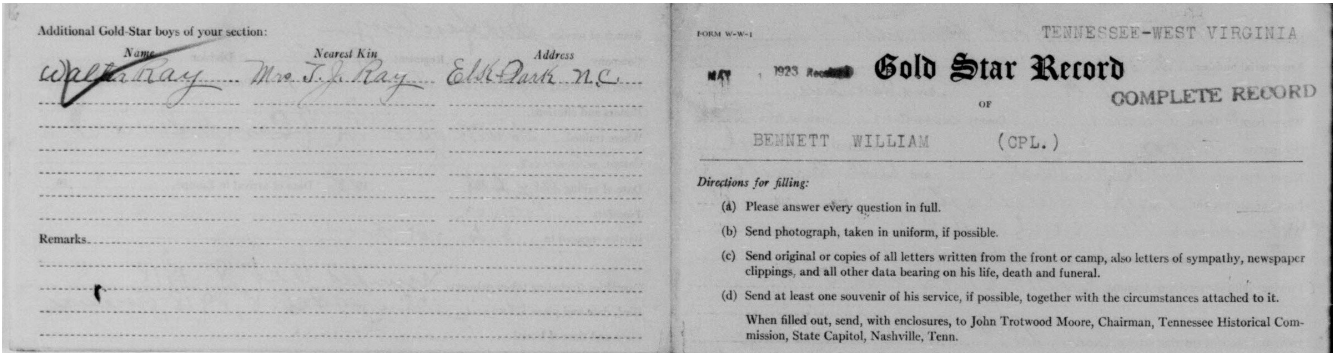 Additional Gold-Star boys of your section:
Name Nearest Kin Address
Walter Ray Mrs. T. J. Ray Elk Park N.C.
Remarks
FORM W-W-1
TENNESSEE-WEST VIRGINIA
MAY , 1923 Received
Gold Star Record
COMPLETE RECORD
OF
BENNETT WILLIAM (CPL.)
Directions for filling:
(a) Please answer every question in full.
(b) Send photograph, taken in uniform, if possible.
(c) Send original or copies of all letters written from the front or camp, also letters of sympathy, newspaper
clippings, and all other data bearing on his life, death and funeral.
(d) Send at least one souvenir of his service, if possible, together with the circumstances attached to it.
When filled out, send, with enclosures, to John Trotwood Moore, Chairman, Tennessee Historical Com-
mission, State Capitol, Nashville, Tenn.